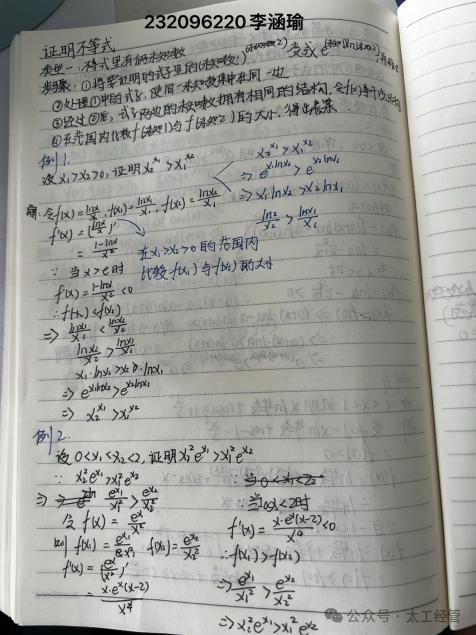 232096220 李涵瑜
证明不等式
类型一:不等式里有俩未知数
步骤:①将要证明的式子里的(未知数1)^(未知数2)变成 e^(未知数2)ln(未知数1)
②处理①中的式子,使同一未知数集中在同一边
③经过②后,式子两边的未知数拥有相同的结构,令f(x)等于
④在范围内比较f(未知数1)与f(未知数2)的大小,得出结果
例1.
设x₁>x₂>0,证明x₂^x₁>x₁^x₂
x₂^x₁>x₁^x₂
⇒e^x₁lnx₂>e^x₂lnx₁
⇒x₁lnx₂>x₂lnx₁
∴lnx₂/x₂>lnx₁/x₁
令f(x)=lnx/x,f(x₁)=lnx₁/x₁,f(x₂)=lnx₂/x₂
f'(x)=(lnx/x)'
=(1-lnx)/x²
在x₁>x₂>0的范围内
比较f(x₁)与f(x₂)的大小
∵当x>e时
f'(x)=(1-lnx)/x²<0
∴f(x₁)<f(x₂)
⇒lnx₁/x₁<lnx₂/x₂
lnx₂/x₂>lnx₁/x₁
x₁·lnx₂>x₂·lnx₁
⇒e^x₁lnx₂>e^x₂lnx₁
⇒x₂^x₁>x₁^x₂
例2.
设0<x₁<x₂<2,证明x₂²e^x₁>x₁²e^x₂
∵x₂²e^x₁>x₁²e^x₂
⇒e^x₁/x₁²>e^x₂/x₂²
令f(x)=e^x/x²
则f(x₁)=e^x₁/x₁² f(x₂)=e^x₂/x₂²
f'(x)=(e^x/x²)'
=x·e^x(x-2)/x⁴
∵当0<x<2时
f'(x)=x·e^x(x-2)/x⁴<0
∴f(x₁)>f(x₂)
⇒e^x₁/x₁²>e^x₂/x₂²
⇒x₂²e^x₁>x₁²e^x₂
公众号·太工经管